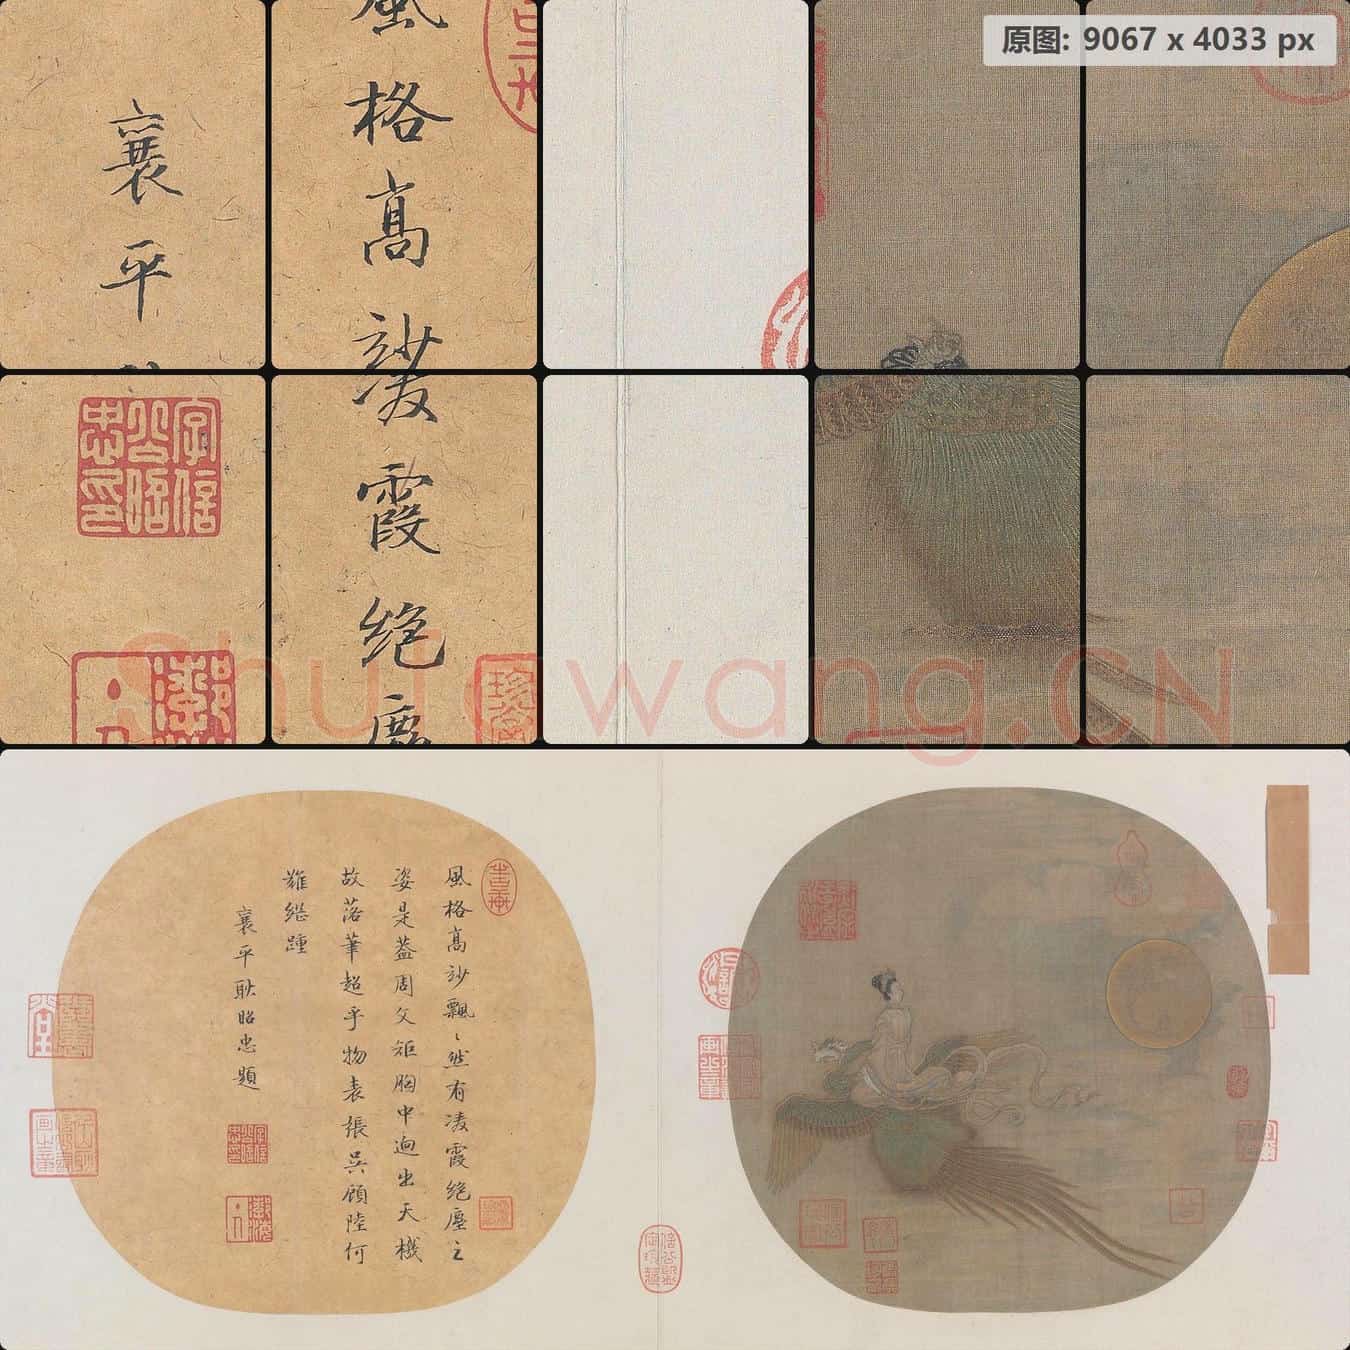 原图: 9067 x 4033 px
襄平
風格高玅
字信公昭忠印
凌霞絕塵
Shufawang.CN
風格高玅飄〻然有凌霞絕塵之
姿是蓋周文矩胸中迥出天機
故落筆超乎物表張吳顧陸何
難繼踵
襄平耿昭忠題